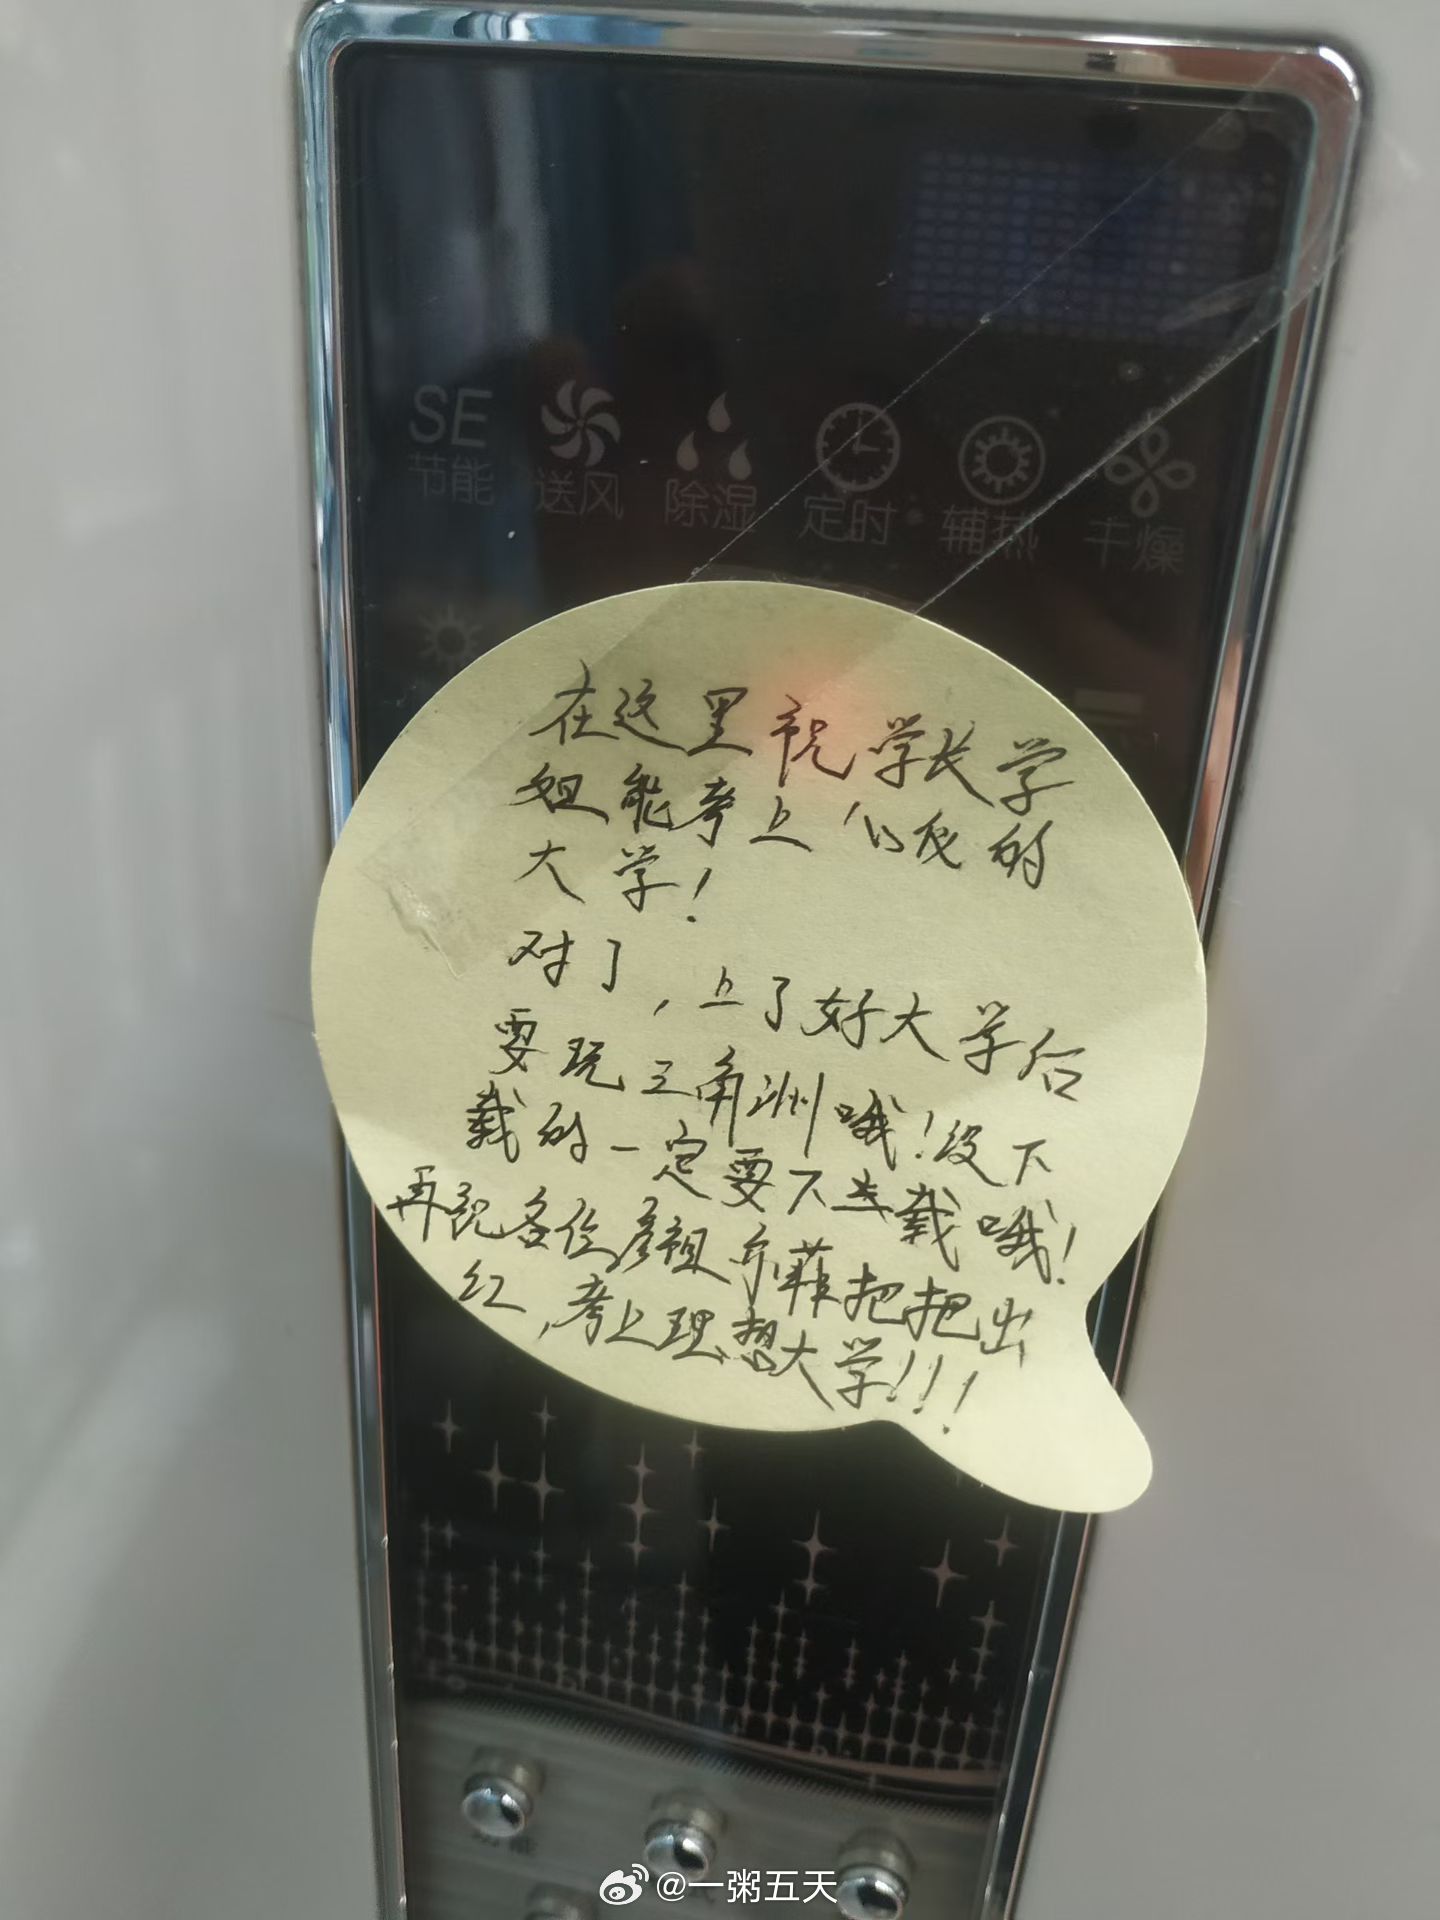 SE
节能 送风 除湿 定时 辅热 干燥
在这里祝学长学
姐能考上心仪的
大学!
对了,上了好大学后
要玩三角洲哦!没下
载的一定要下去载哦!
再祝各位彦祖亦菲把把出
红,考上理想大学!!!
@一粥五天